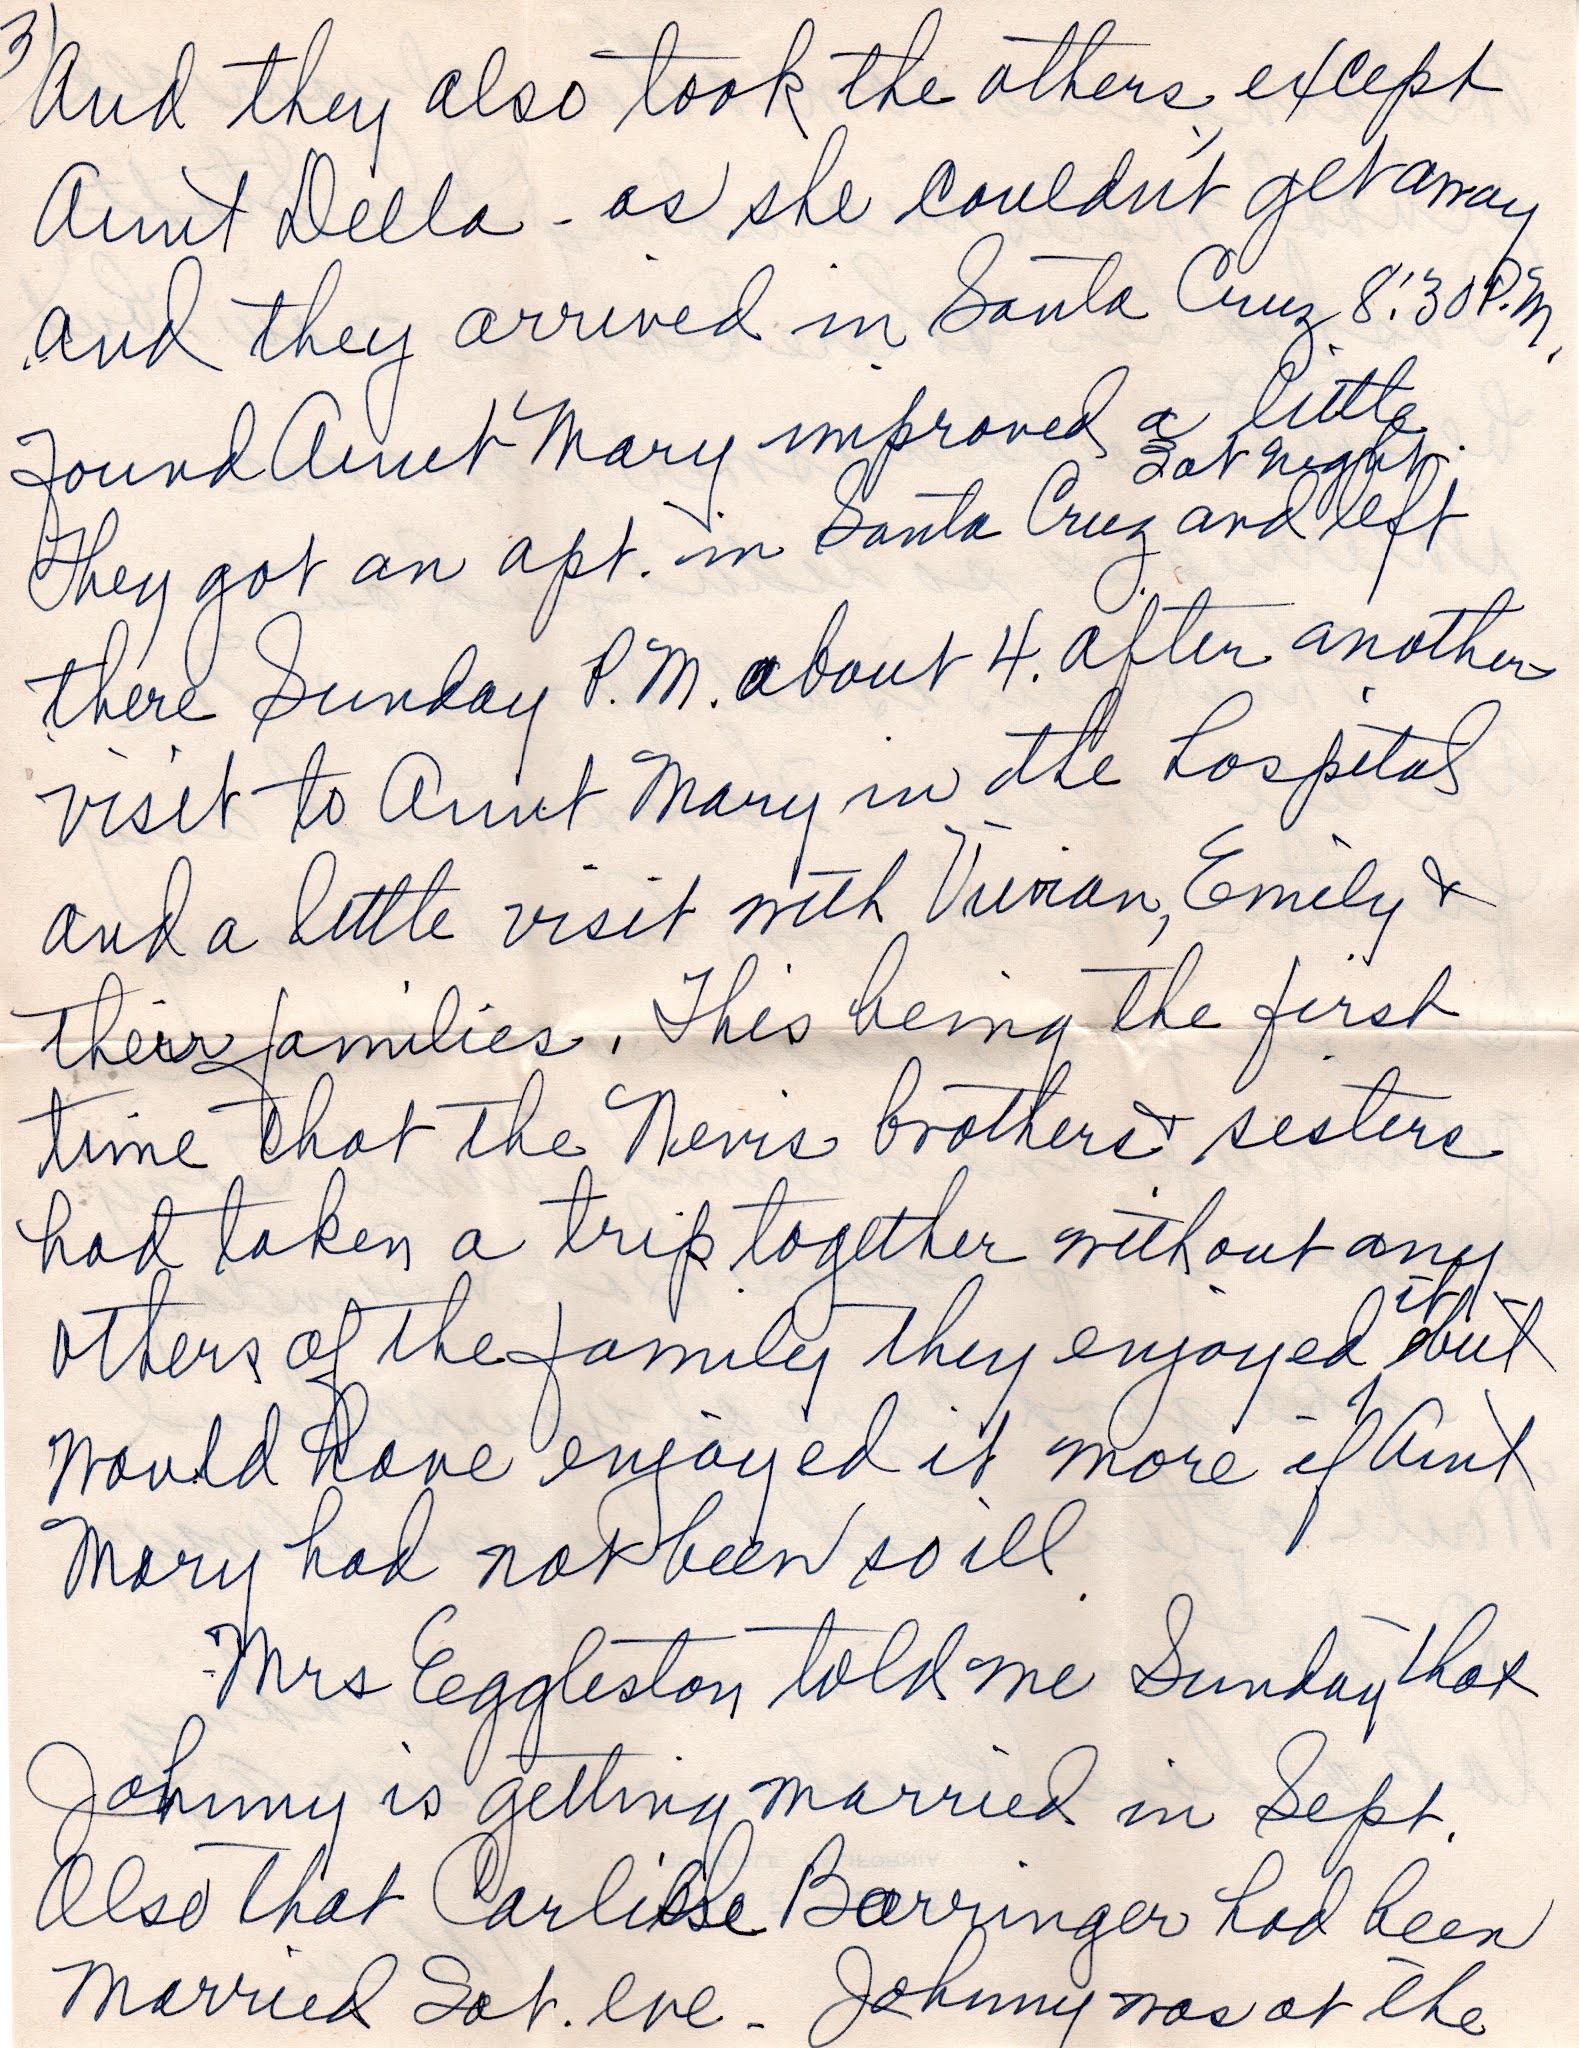 3)
And they also took the others, except
Aunt Della - as she couldn't get away
and they arrived in Santa Cruz 8:30 P.M.
Found Aunt Mary improved a little.
Sat night
They got an apt. in Santa Cruz and left
there Sunday P.M. about 4. after another
visit to Aunt Mary in the hospital
and a little visit with Vivian, Emily &
their families. This being the first
time that the Nevis brothers & sisters
had taken a trip together without any
others of the family they enjoyed it but
would have enjoyed it more if Aunt
Mary had not been so ill.
Mrs Eggleston told me Sunday that
Johnny is getting married in Sept.
Also that Barringer had been
married Sat. eve - Johnny was at the